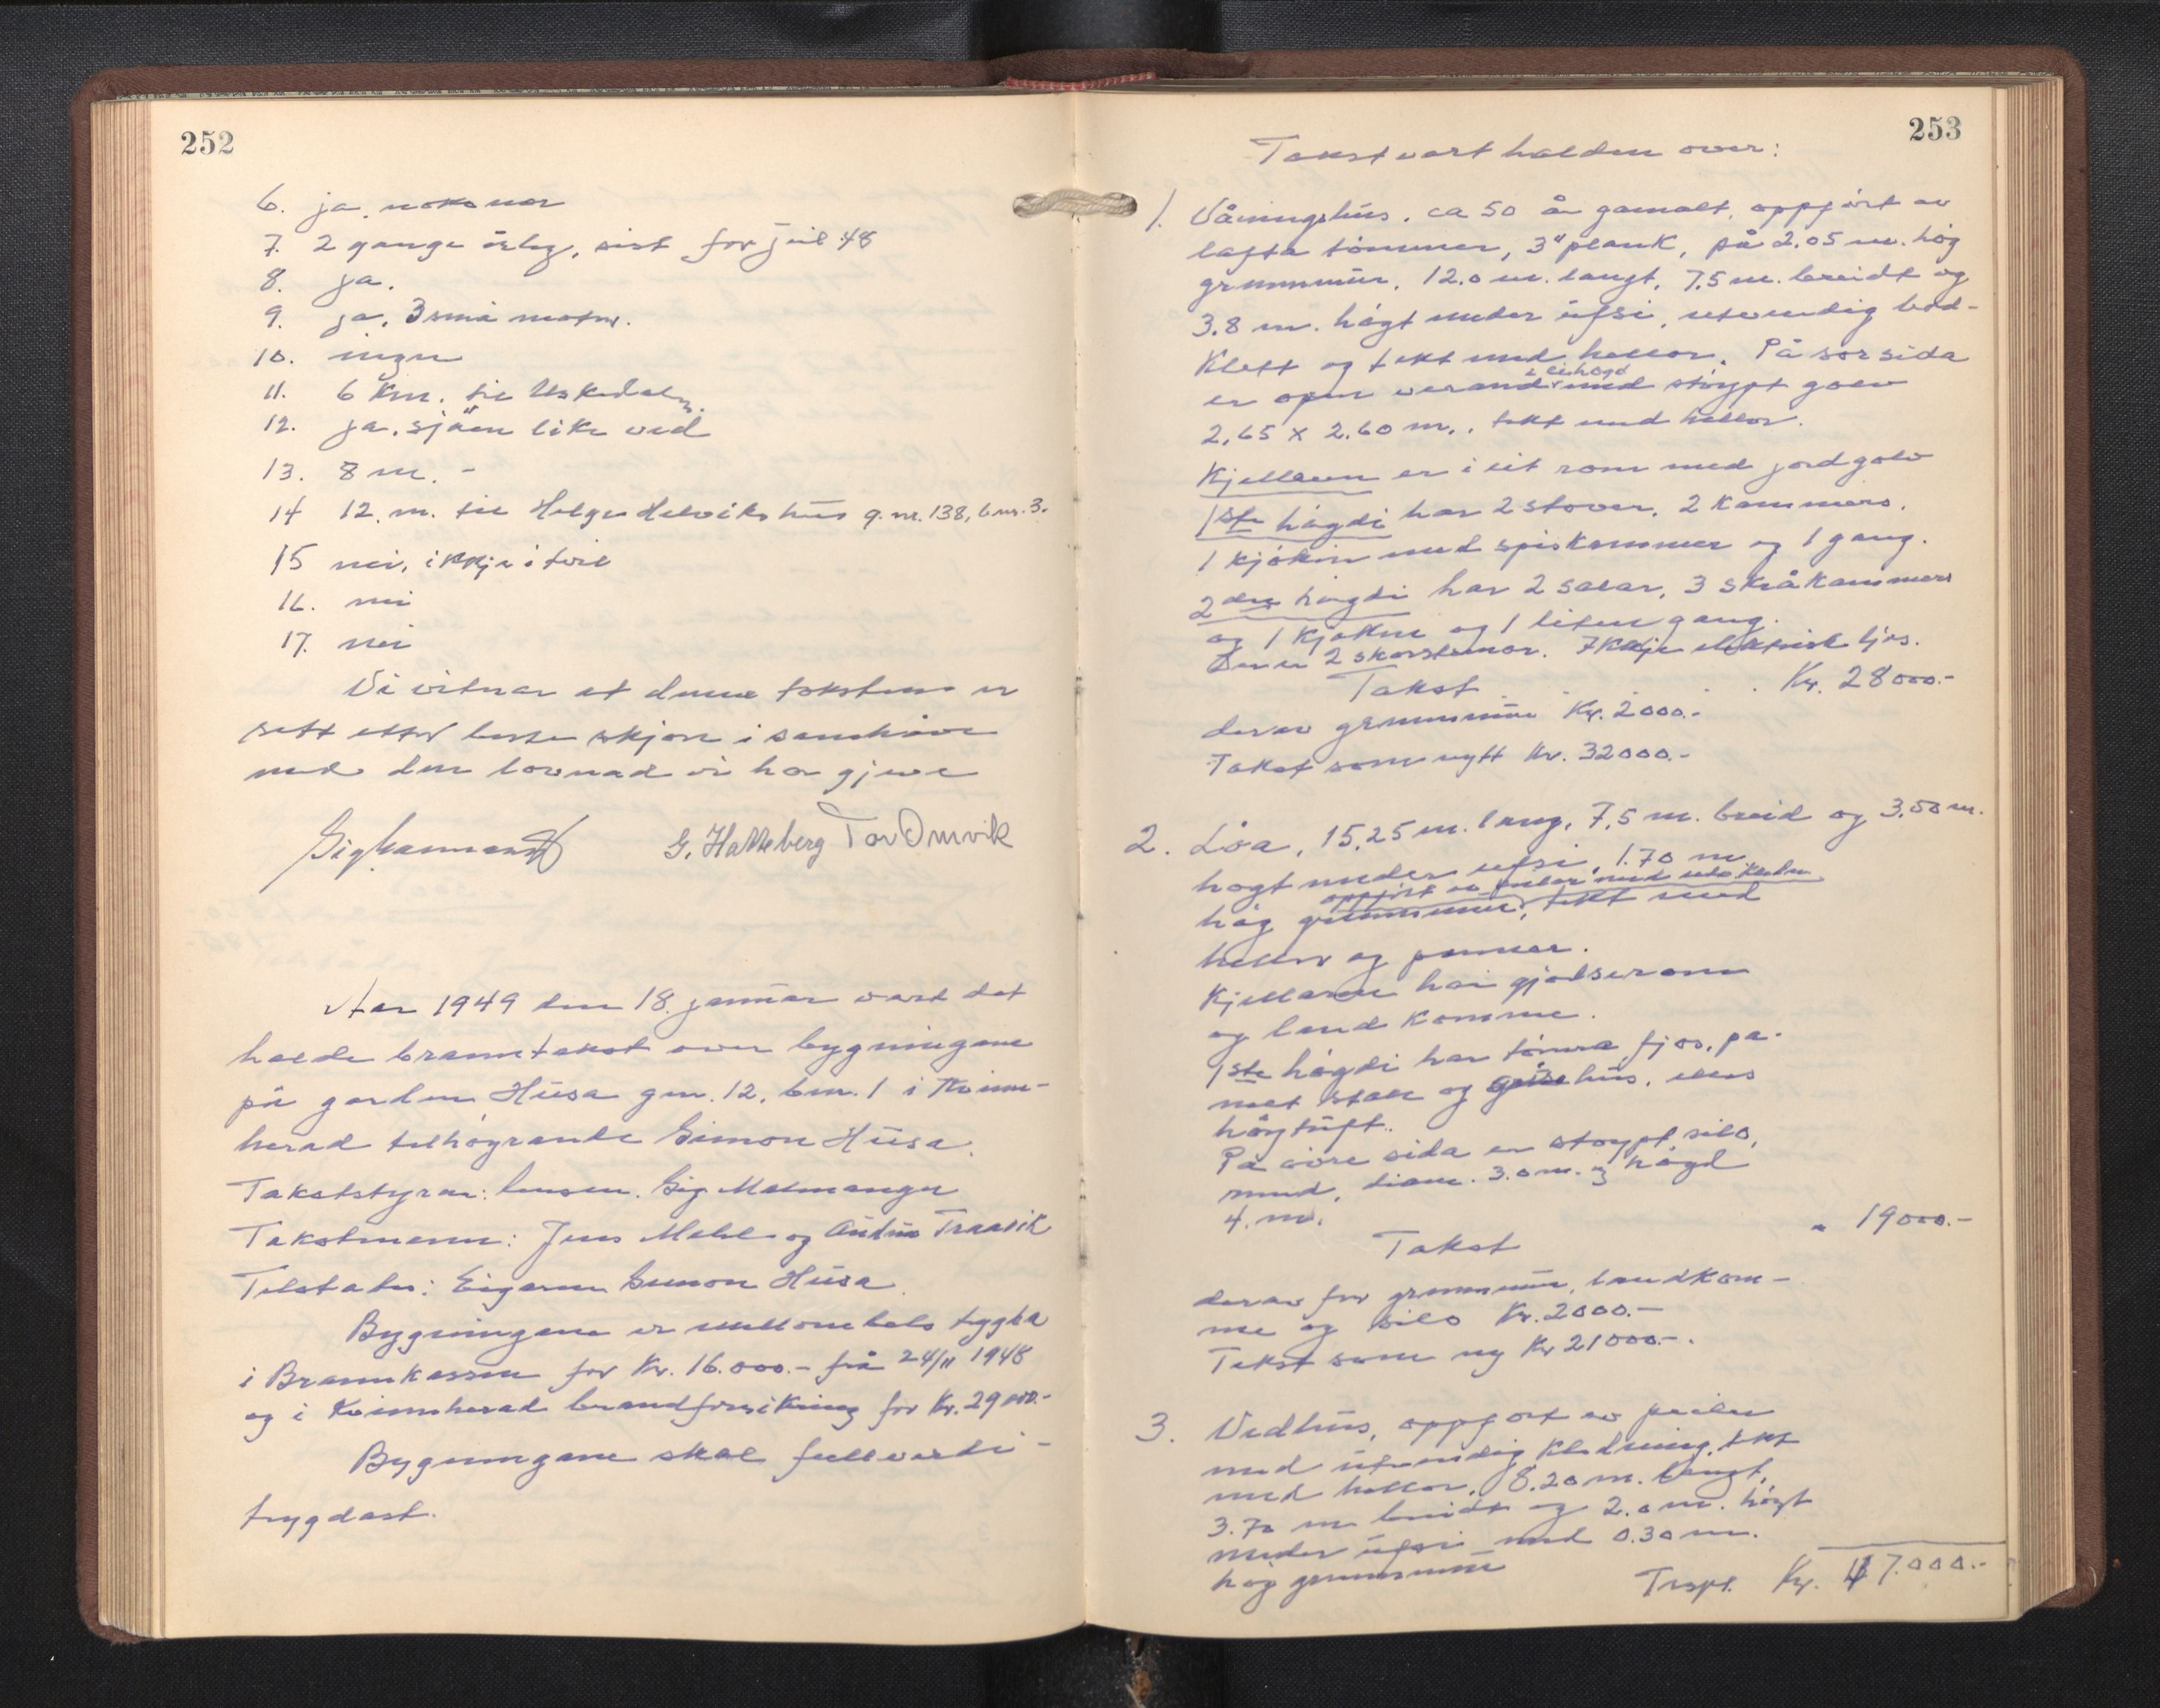 252
6. ja. noko nær
7. 2 gange årleg, sist for jul 48
8. ja.
9. ja, 3 små motor.
10. ingen
11. 6 km. til Uskedalen.
12. ja. sjöen like ved
13. 8 m. -
14 12. m. til Helge Helviks hus g. nr. 138, b.nr. 3.
15 nei, ikkje i tvil
16. nei
17. nei
Vi vitnar at denne taksten er
sett etter beste skjøn i samhøve
med den lovnad vi har gjeve
G. Hatteberg Tor Omvik
Aar 1949 den 18. januar vart det
halde branntakst over bygningane
på garden Husa gnr. 12, bnr. 1 i Kvinn-
herad tilhøyrande Simon Husa.
Takststyrar: lensm. Sig Malmanger
Takstmenn: Jens Mehl og
Tilstades: Eigaren Simon Husa.
Bygningane er mellombels trygda
i Brannkassen for Kr. 16.000.- frå 24/11 1948
og i Kvinnherad brandforsikring for Kr. 29000.-
Bygningane skal fullverdi-
trygdast.
253
Takst vart halden over:
1. Våningshus. ca 50 år gamalt, oppført av
lafta tömmer, 3" plank, på 2.05 m. hög
grunnmur. 12.0 m. langt, 7.5 m. breidt og
3.8 m. högt under ufsi, utvendig bord-
klett og tekt med hellor. På sør sida
er open verand i ei høgd med støypt golv
2.65 x 2.60 m., tekt med hellor.
Kjellaren er i eit rom med jordgolv
1ste högdi har 2 stover, 2 kammers,
1 kjökin med spiskammer og 1 gang.
2dre högdi har 2 salar, 3 skråkammers
og 1 kjøkken og 1 liten gang.
Der er 2 skorsteinar. Ikkje elektrisk ljos.
Takst . . . . Kr. 28000.-
derav grunnmur Kr. 2000.-
Takst som nytt Kr. 32000.-
2. Löa, 15.25 m. lang, 7.5 m. breid og 3.50 m.
høgt under ufsi, 1.70 m
oppført av
hög grunnmur, tekt med
hellor og pannor.
Kjellaren har gjødselrom
og land komme.
1ste högdi har tömra fjøs, pa-
nelt stall og grisehus, elles
höytuft.
På øvre sida er støypt silo,
rund, diam. 3.0 m. og högd
4. m.
Takst " 19000.-
derav for grunnmur, landkom-
me og silo Kr. 2000.-
Takst som ny Kr 21000.-.
3. Vedhus, oppført av
med utvendig kledning, tekt
med hellor. 8.20 m. langt,
3.70 m breidt og 2.0 m. högt
under ufsi med 0.30 m.
hög grunnmur
Trspt. Kr. 47.000.-